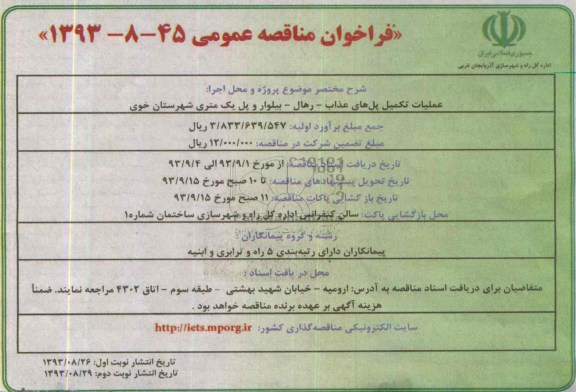 «فراخوان مناقصه عمومی ۴۵-۸- ۱۳۹۳»
جمهوری اسلامی ایران
اداره کل راه و شهرسازی آذربایجان غربی
شرح مختصر موضوع پروژه و محل اجرا:
عملیات تکمیل پل‌های عذاب - رهال - بیلوار و پل یک متری شهرستان خوی
جمع مبلغ برآورد اولیه: ۳/۸۳۳/۶۳۹/۵۴۷ ریال
مبلغ تضمین شرکت در مناقصه: ۱۲/۰۰۰/۰۰۰ ریال
تاریخ دریافت اسناد مناقصه: از مورخ ۹۳/۹/۱ الی ۹۳/۹/۴
تاریخ تحویل پیشنهادهای مناقصه: تا ۱۰ صبح مورخ ۹۳/۹/۱۵
تاریخ بازگشایی پاکات مناقصه: ۱۱ صبح مورخ ۹۳/۹/۱۵
محل بازگشایی پاکت: سالن کنفرانس اداره کل راه و شهرسازی ساختمان شماره۱
رشته و گروه پیمانکاران:
پیمانکاران دارای رتبه‌بندی ۵ راه و ترابری و ابنیه
محل دریافت اسناد:
متقاضیان برای دریافت اسناد مناقصه به آدرس: ارومیه - خیابان شهید بهشتی - طبقه سوم - اتاق ۴۳۰۲ مراجعه نمایند. ضمناً
هزینه آگهی بر عهده برنده مناقصه خواهد بود.
سایت الکترونیکی مناقصه‌گذاری کشور: http://iets.mporg.ir
تاریخ انتشار نوبت اول: ۱۳۹۳/۰۸/۲۶
تاریخ انتشار نوبت دوم: ۱۳۹۳/۰۸/۲۹